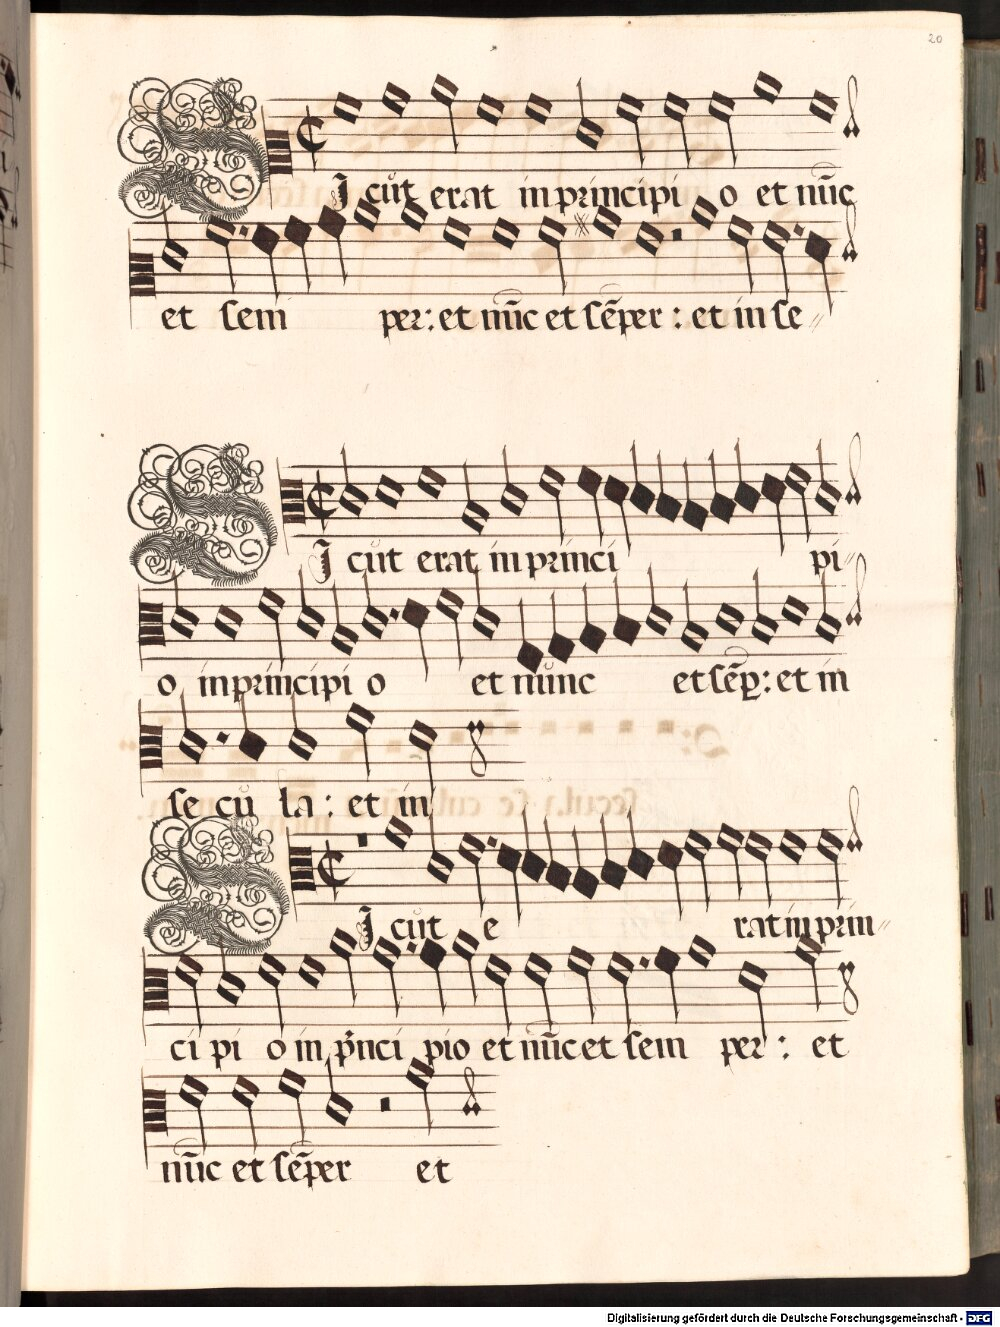 20
Sicut erat in principi o et nūc
et sem per: et nūc et sēper: et in se
Sicut erat in princi pi
o in principi o et nunc et sēꝑ: et in
se cu la: et in
Sicut e rat in prin
ci pi o in p̄nci pio et nūc et sem per: et
nūc et sēper et
Digitalisierung gefördert durch die Deutsche Forschungsgemeinschaft - DFG